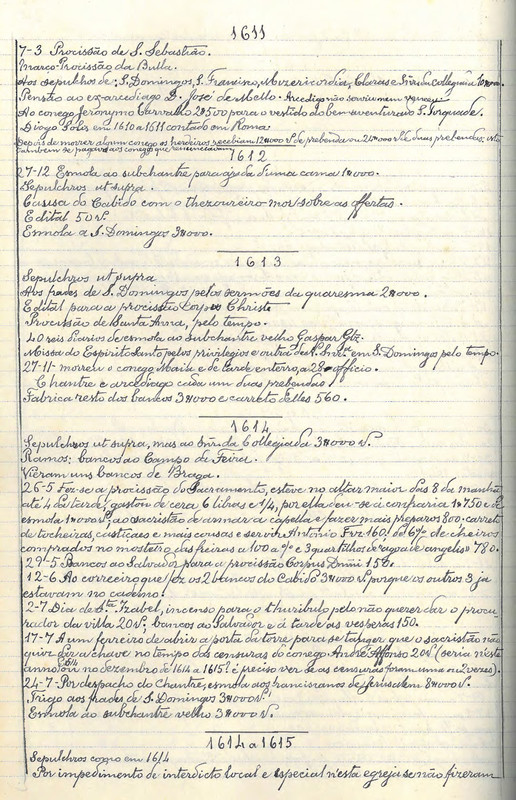 1611
7-3 Procissão de S. Sebastião.
Março-Procissão da Bulla.
Aos sepulchos de: S. Domingos, S. Francisco, Mizericordia, Claras e Snr.ª da Collegiada
Pensão ao ex-arcediago D. José de Mello. Arcediago não
Ao conego Jeronymo Carvalho 2#500 para o vestido do bemaventurado S. Torquade.
Diogo em 1610 a 1611 contado em Roma
Depois de morrer algum conego os herdeiros recebiam 12#000 rs. de prebenda ou 24#000 rs. de duas prebendas, isto
tambem se pagava aos conegos que renunciavam
1612
27-12 Esmola ao subchantre para ajuda d'uma cama 1#000.
Sepulchros ut supra.
Causa do Cabido com o thezoureiro mor sobre as offertas.
Edital 50 rs.
Esmola a S. Domingos 3#000.
1613
Sepulchros ut supra
Aos frades de S. Domingos pelos sermões da quaresma 2#000.
Edital para a procissão Corpus Christi
Procissão de Santa Anna, pelo tempo.
40 reis diarios de esmola ao Subchantre velho Gaspar Glz.
Missa do Espirito Santo pelos privilegios e outra de N. Snr.ª em S. Domingos pelo tempo.
27-11- morreu o conego Maia e de tarde enterro, a 28- officio.
Chantre e arcediago cada um duas prebendas
Fabrica resto dos bancos 3#000 e carreto d'elles 560.
1614
Sepulchros ut supra, mas ao Snr. da Collegiada 3#000 rs.
Ramos: bancos ao Campo da Feira.
Vieram uns bancos de Braga.
26-5 Fez-se a procissão do Sacramento, esteve no altar maior das 8 da manhã
até 4 da tarde, gastou de cera 6 libras e 1/4, por ella deu-se á confraria 1#750 e de
esmola 1#000 rs, ao sacristão de armar a capella e fazer mais preparos 800, carret
de tocheiras, castiçaes e mais cousas e servir Antonio Frz 160. de cheiros
comprados no mosteiro das freiras a 100 a e 3 quartilhos de "agoa de angelis" 780.
29-5 Bancos ao Salvador para a procissão Corpus Dnni 150.
12-6 Ao correeiro que fez os 2 bancos do Cabido 3#000 rs. porque os outros 3 ja
estavam no caderno.
2-7 Dia de Sta. Izabel, incenso para o thuribulo pelo não querer dar o procu-
rador da villa 20 rs. bancos ao Salvador e á tarde as vesperas 150.
17-7 A um ferreiro de abrir a porta da torre para se tanger que o sacristão não
quiz dar a chave no tempo das censuras do conego André Affonso 20 rs. (seria n'este
anno ou no dezembro de 1614 a 1615? é preciso ver se as censuras foram uma ou 2 vezes).
24-7- Por despacho do Chantre, esmola aos franciscanos de Jerusalem 8#000 rs.
Trigo aos frades de S. Domingos 3#000 rs.
Esmola ao subchantre velho 3#000 rs.
1614 a 1615
Sepulchros como em 1614
Por impedimento de interdicto local e especial n'esta egreja se não fizeram